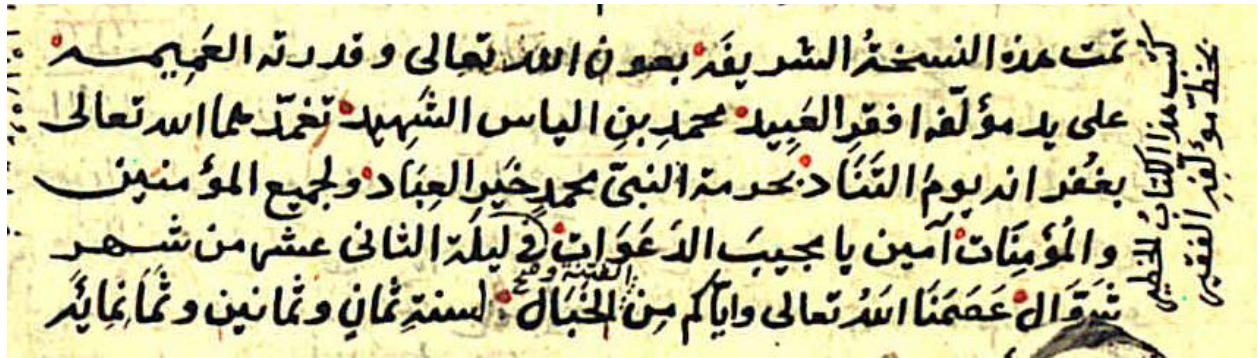 تمت هذه النسخةُ الشريفَة بعون الله تعالى وقدرته العَمِيمـــة
على يد مؤلّفه افقرِ العَبِيد محمدِ بنِ الياس الشَهِيد تغمّدهما الله تعالى
بغُفرانه يومَ التَنَاد بحرمة النبىّ محمدٍ خَيرِ العِبَاد ولجميع المؤمنين
والمُؤمِنَات آمين يا مجيبَ الدَعَوَاتِ فى ليلَة الثانى عشر من شهــر
شَوَّال عَصَمَنَا اللهُ تعالى وايّاكم مِن الخَبَال لسنةِ ثمانٍ وثمانين وثَمَانِمايَة
كتب هذا الكتابُ
بخطّ مؤلّفِهِ الفقير